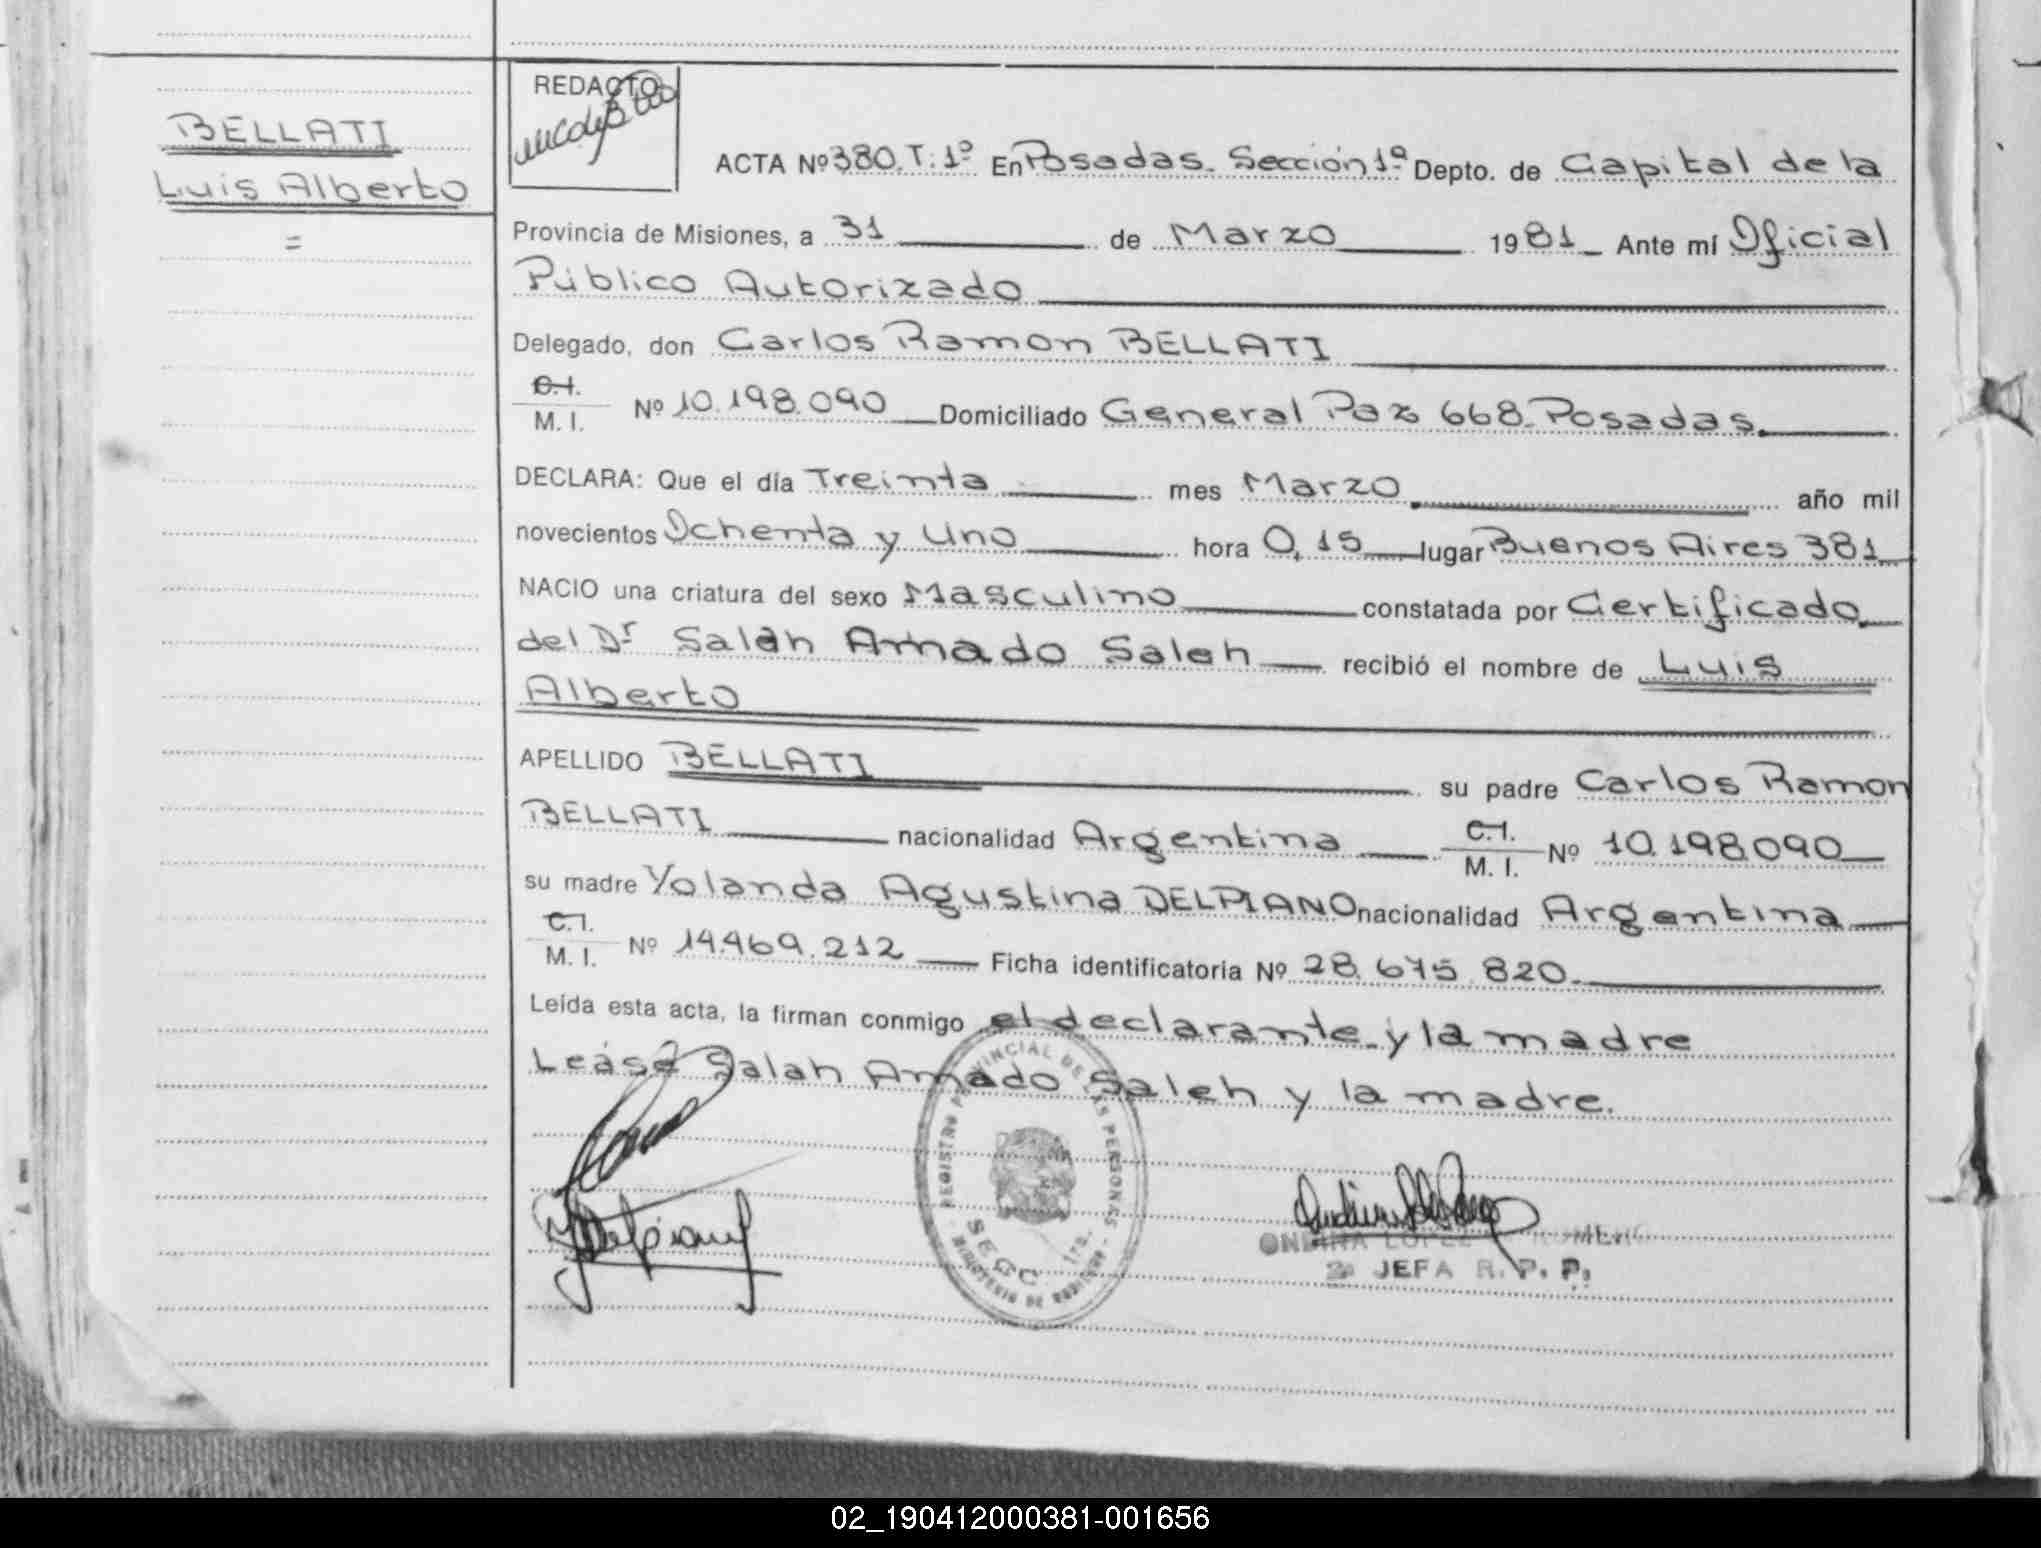 BELLATI
Luis Alberto
=
REDACTO
ACTA Nº 380. T: 1º En Posadas. Sección 1ª Depto. de Capital de la
Provincia de Misiones, a 31 de Marzo 1981 Ante mí Oficial
Público Autorizado
Delegado, don Carlos Ramon BELLATI
C.I.
M. I. Nº 10.198.090 Domiciliado General Paz 668. Posadas.
DECLARA: Que el día Treinta mes Marzo año mil
novecientos Ochenta y Uno hora 0,15 lugar Buenos Aires 381
NACIO una criatura del sexo Masculino constatada por Certificado
del Dr Salah Amado Saleh recibió el nombre de Luis
Alberto
APELLIDO BELLATI su padre Carlos Ramon
BELLATI nacionalidad Argentina C.I. M. I. Nº 10.198.090
su madre Yolanda Agustina DELPIANO nacionalidad Argentina
C.I.
M. I. Nº 14.469.212 Ficha identificatoria Nº 28.675.820.
Leída esta acta, la firman conmigo el declarante y la madre
Leáse Salah Amado Saleh y la madre.
REGISTRO PROVINCIAL DE LAS PERSONAS
SECC. 1ra.
MINISTERIO DE GOBIERNO
ONDINA LOPEZ ROMERO
2ª JEFA R. P. P.
02_190412000381-001656